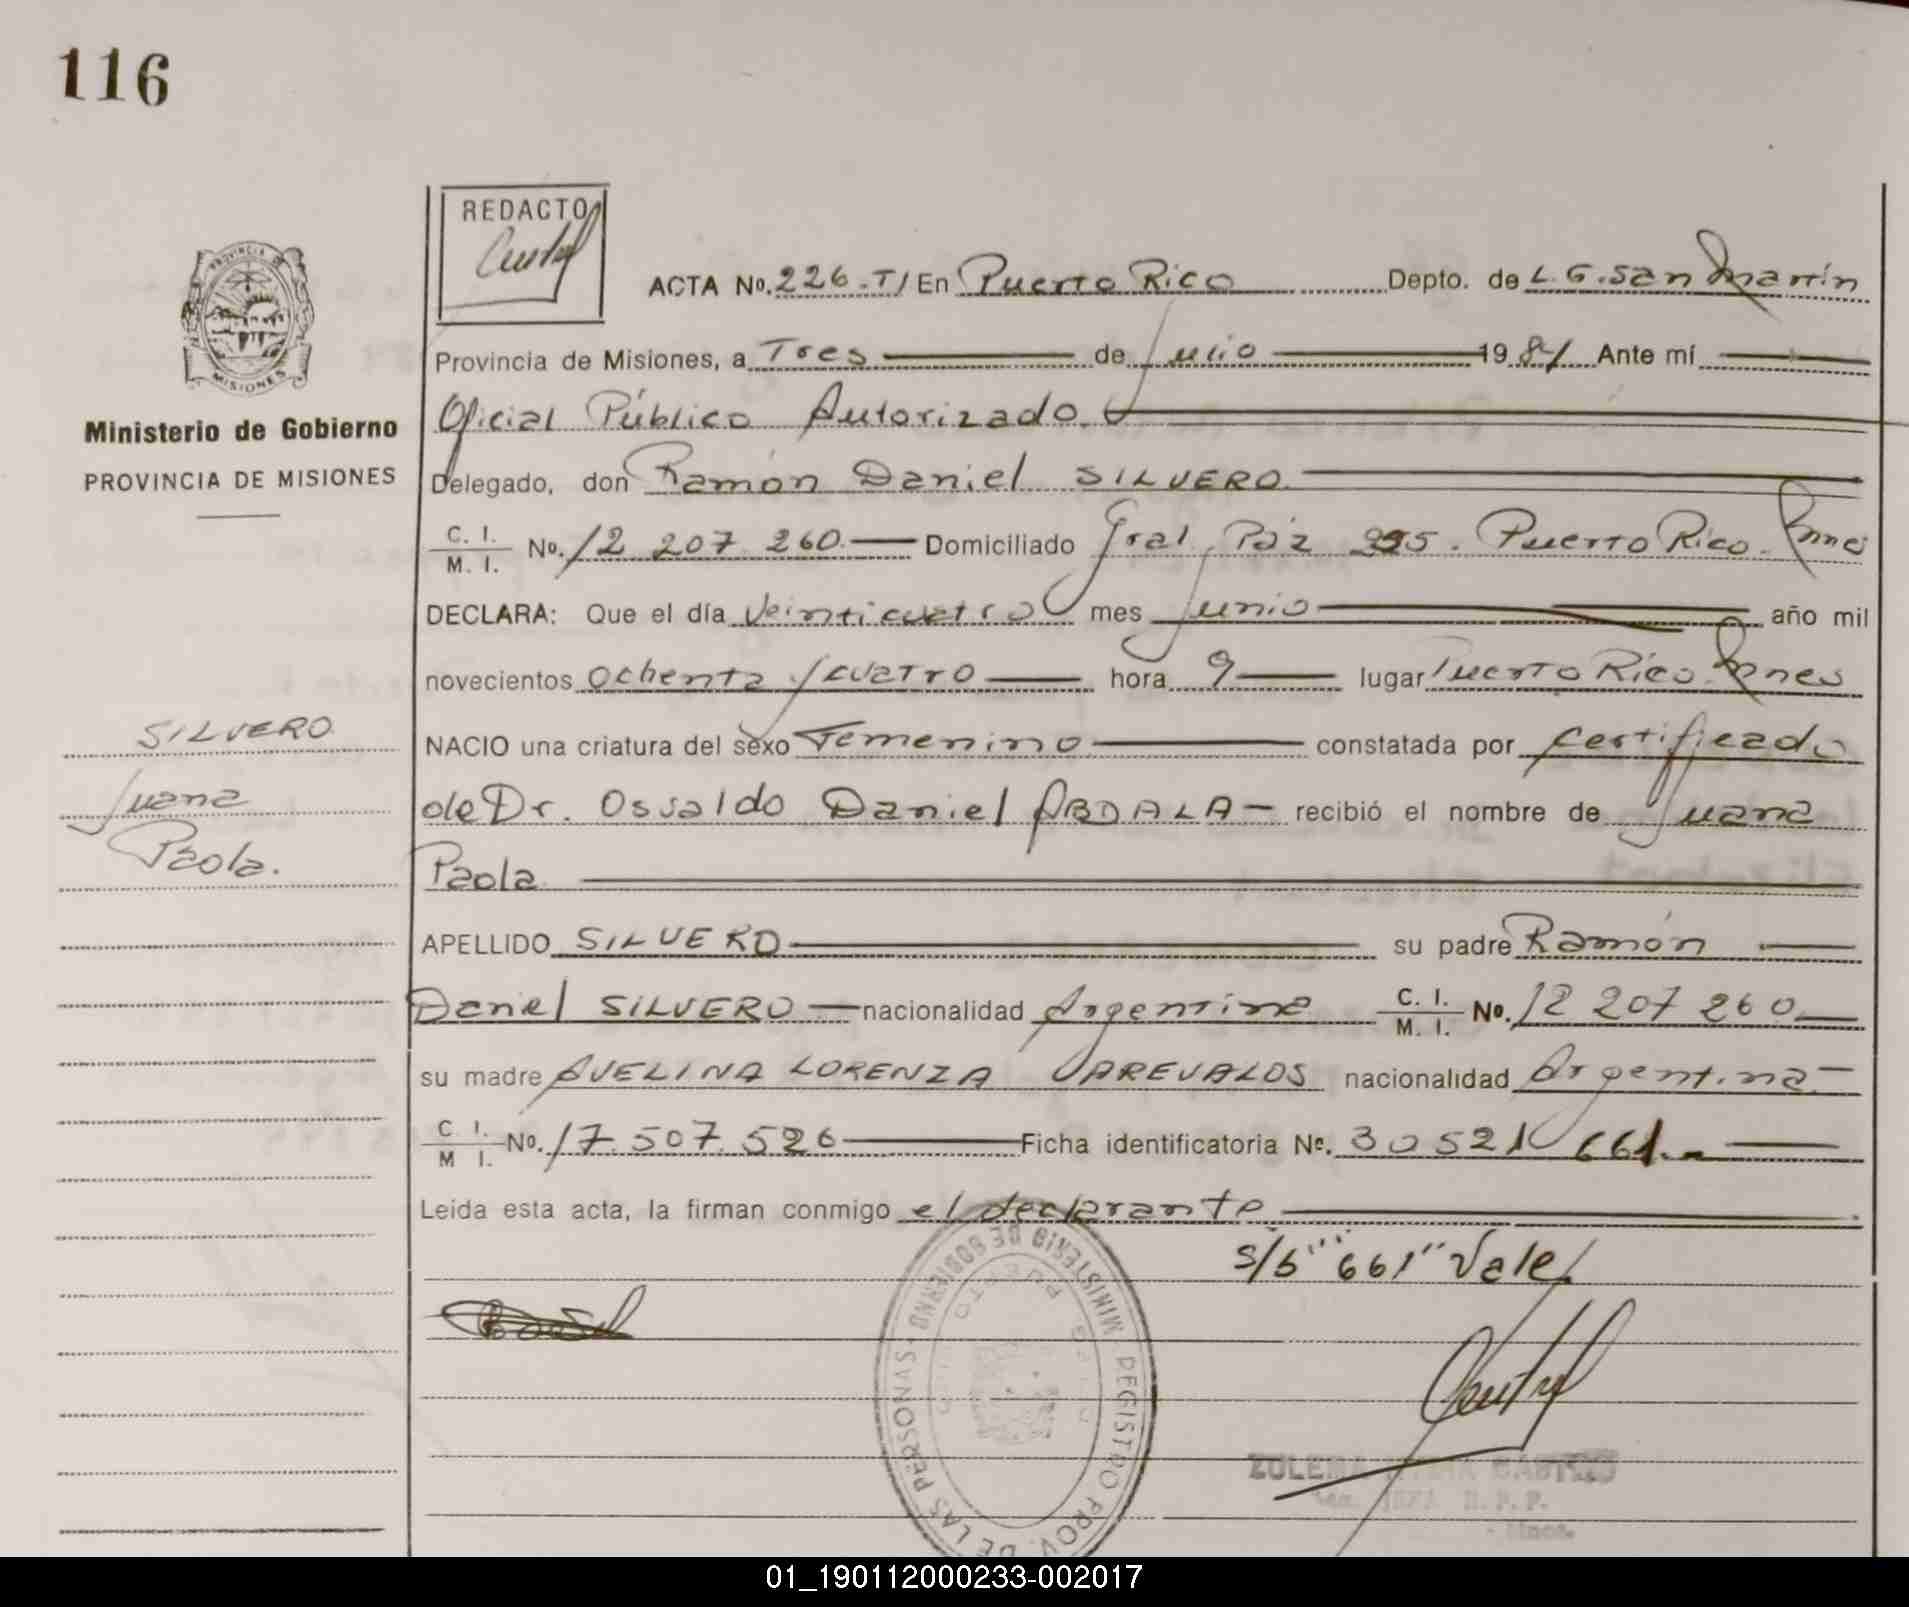 116
REDACTO
ACTA Nº. 226. T/ En Puerto Rico Depto. de L. G. San Martín
Provincia de Misiones, a Tres de Julio 19 84 Ante mí
Oficial Público Autorizado.
Delegado, don Ramón Daniel SILVERO.
C. I. / M. I. Nº. 12 207 260. Domiciliado Gral Páz 995. Puerto Rico. Mnes
DECLARA: Que el día Veinticuatro mes Junio año mil
novecientos Ochenta y cuatro hora 9 lugar Puerto Rico. Mnes
NACIO una criatura del sexo Femenino constatada por certificado
de Dr. Osvaldo Daniel ABDALA recibió el nombre de Juana
Paola
APELLIDO SILVERO su padre Ramón
Daniel SILVERO nacionalidad Argentina C. I. / M. I. Nº. 12 207 260
su madre AVELINA LORENZA AREVALOS nacionalidad Argentina
C I. / M I. Nº. 17.507.526 Ficha identificatoria Nº. 30521 661.
Leida esta acta, la firman conmigo el declarante
s/b "661" Vale
PROVINCIA DE
MISIONES
Ministerio de Gobierno
PROVINCIA DE MISIONES
SILVERO
Juana
Paola.
MINISTERIO DE GOBIERNO
REGISTRO PROV. DE LAS PERSONAS
PUERTO RICO
ZULEMA
01_190112000233-002017